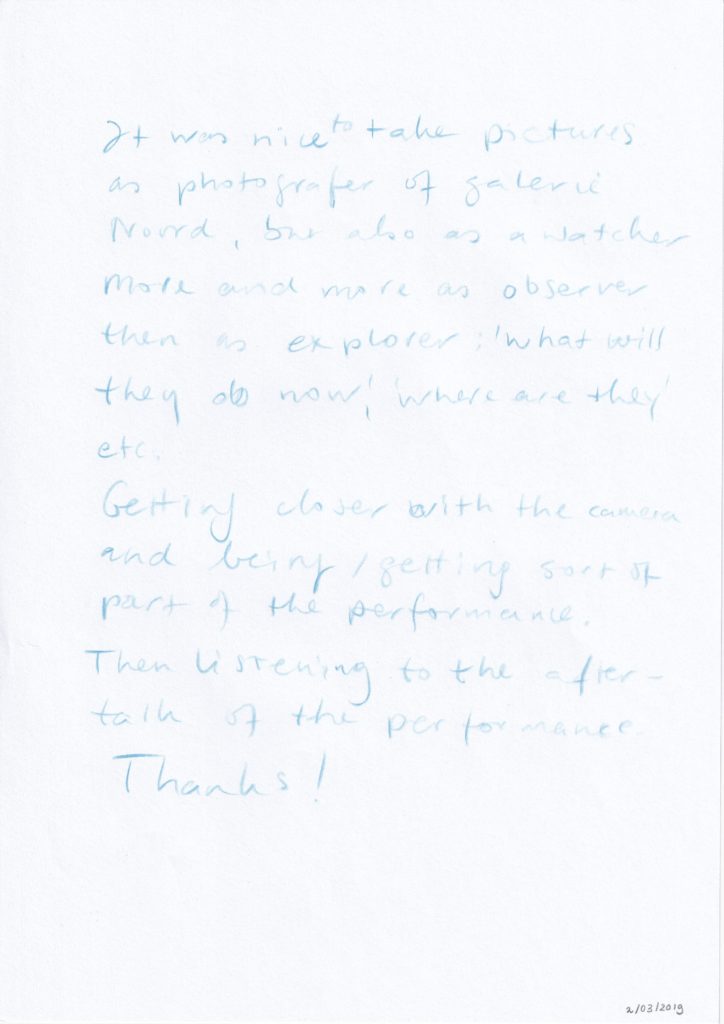 It was nice to take pictures
as photografer of galerie
Noord, but also as a watcher
More and more as observer
then as explorer: 'what will
they do now', 'where are they'
etc.
Getting closer with the camera
and being/getting sort of
part of the performance.
Then listening to the after-
talk of the performance.
Thanks!
2/03/2019